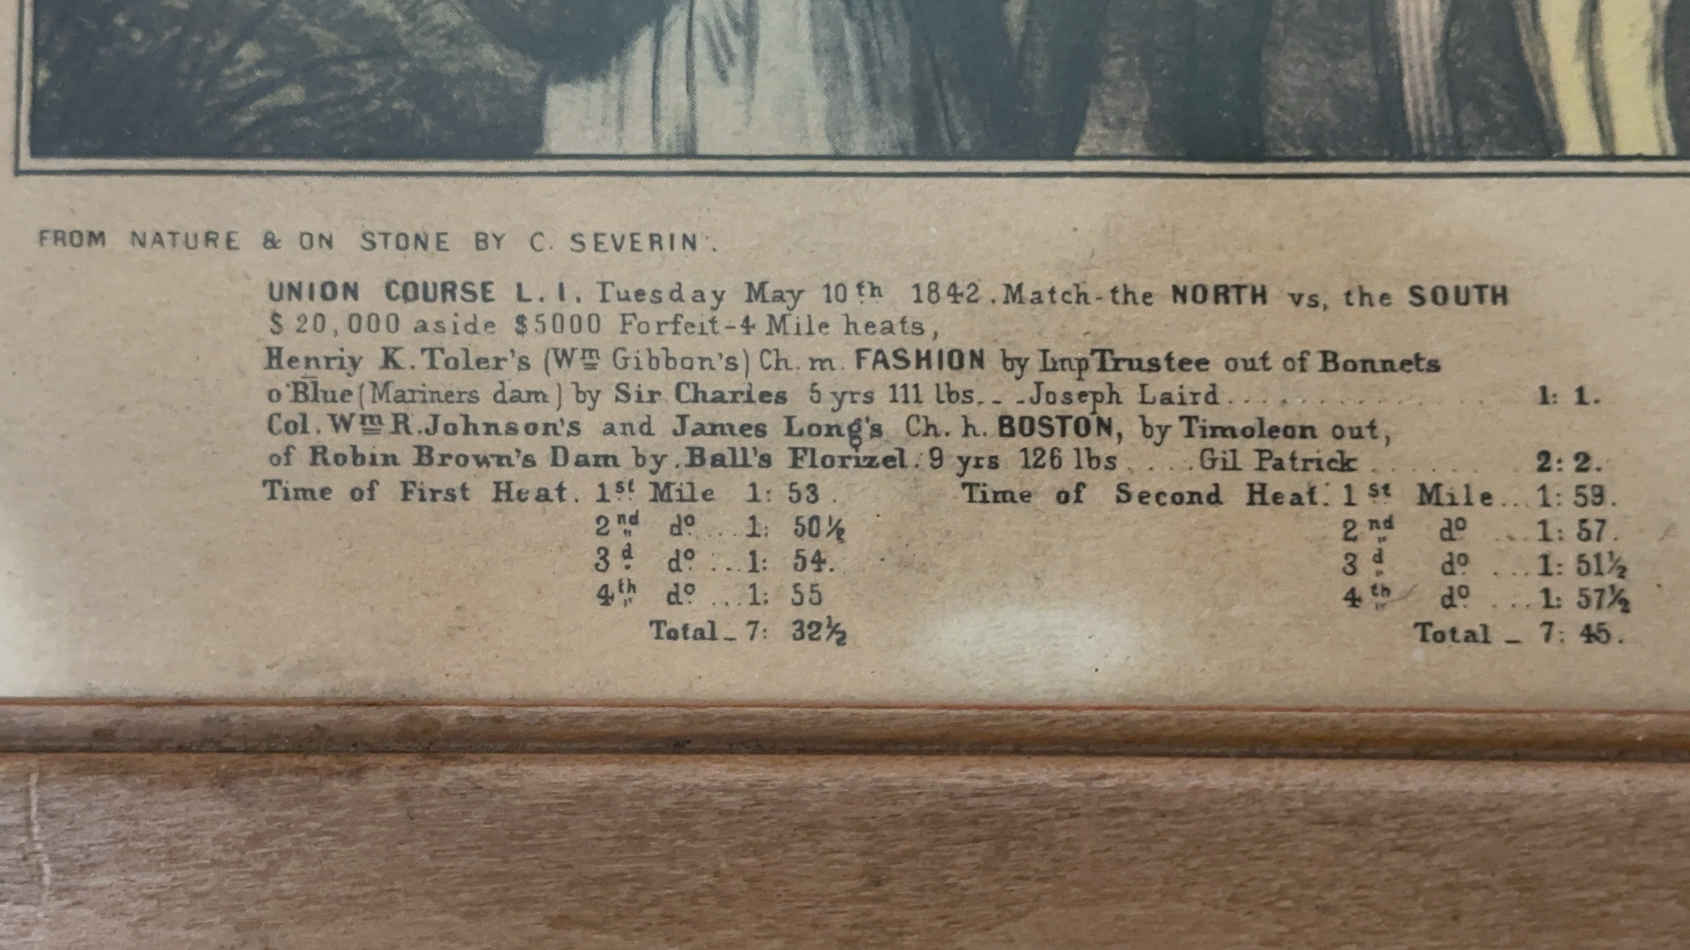 FROM NATURE & ON STONE BY C. SEVERIN.
UNION COURSE L. I. Tuesday May 10th 1842. Match-the NORTH vs, the SOUTH
$ 20,000 aside $5000 Forfeit-4 Mile heats,
Henriy K. Toler's (Wm Gibbon's) Ch. m. FASHION by Imp Trustee out of Bonnets
o'Blue (Mariners dam) by Sir Charles 5 yrs 111 lbs. . . Joseph Laird . . . . . . . . . . . . 1: 1.
Col. Wm R. Johnson's and James Long's Ch. h. BOSTON, by Timoleon out,
of Robin Brown's Dam by . Ball's Florizel. 9 yrs 126 lbs . . . . Gil Patrick . . . . . . . 2: 2.
Time of First Heat. 1st Mile 1: 53. Time of Second Heat. 1st Mile... 1: 59.
2nd do... 1: 50½ 2nd do ... 1: 57.
3d do... 1: 54. 3d do ... 1: 51½
4th do... 1: 55 4th do ... 1: 57½
Total_ 7: 32½ Total _ 7: 45.